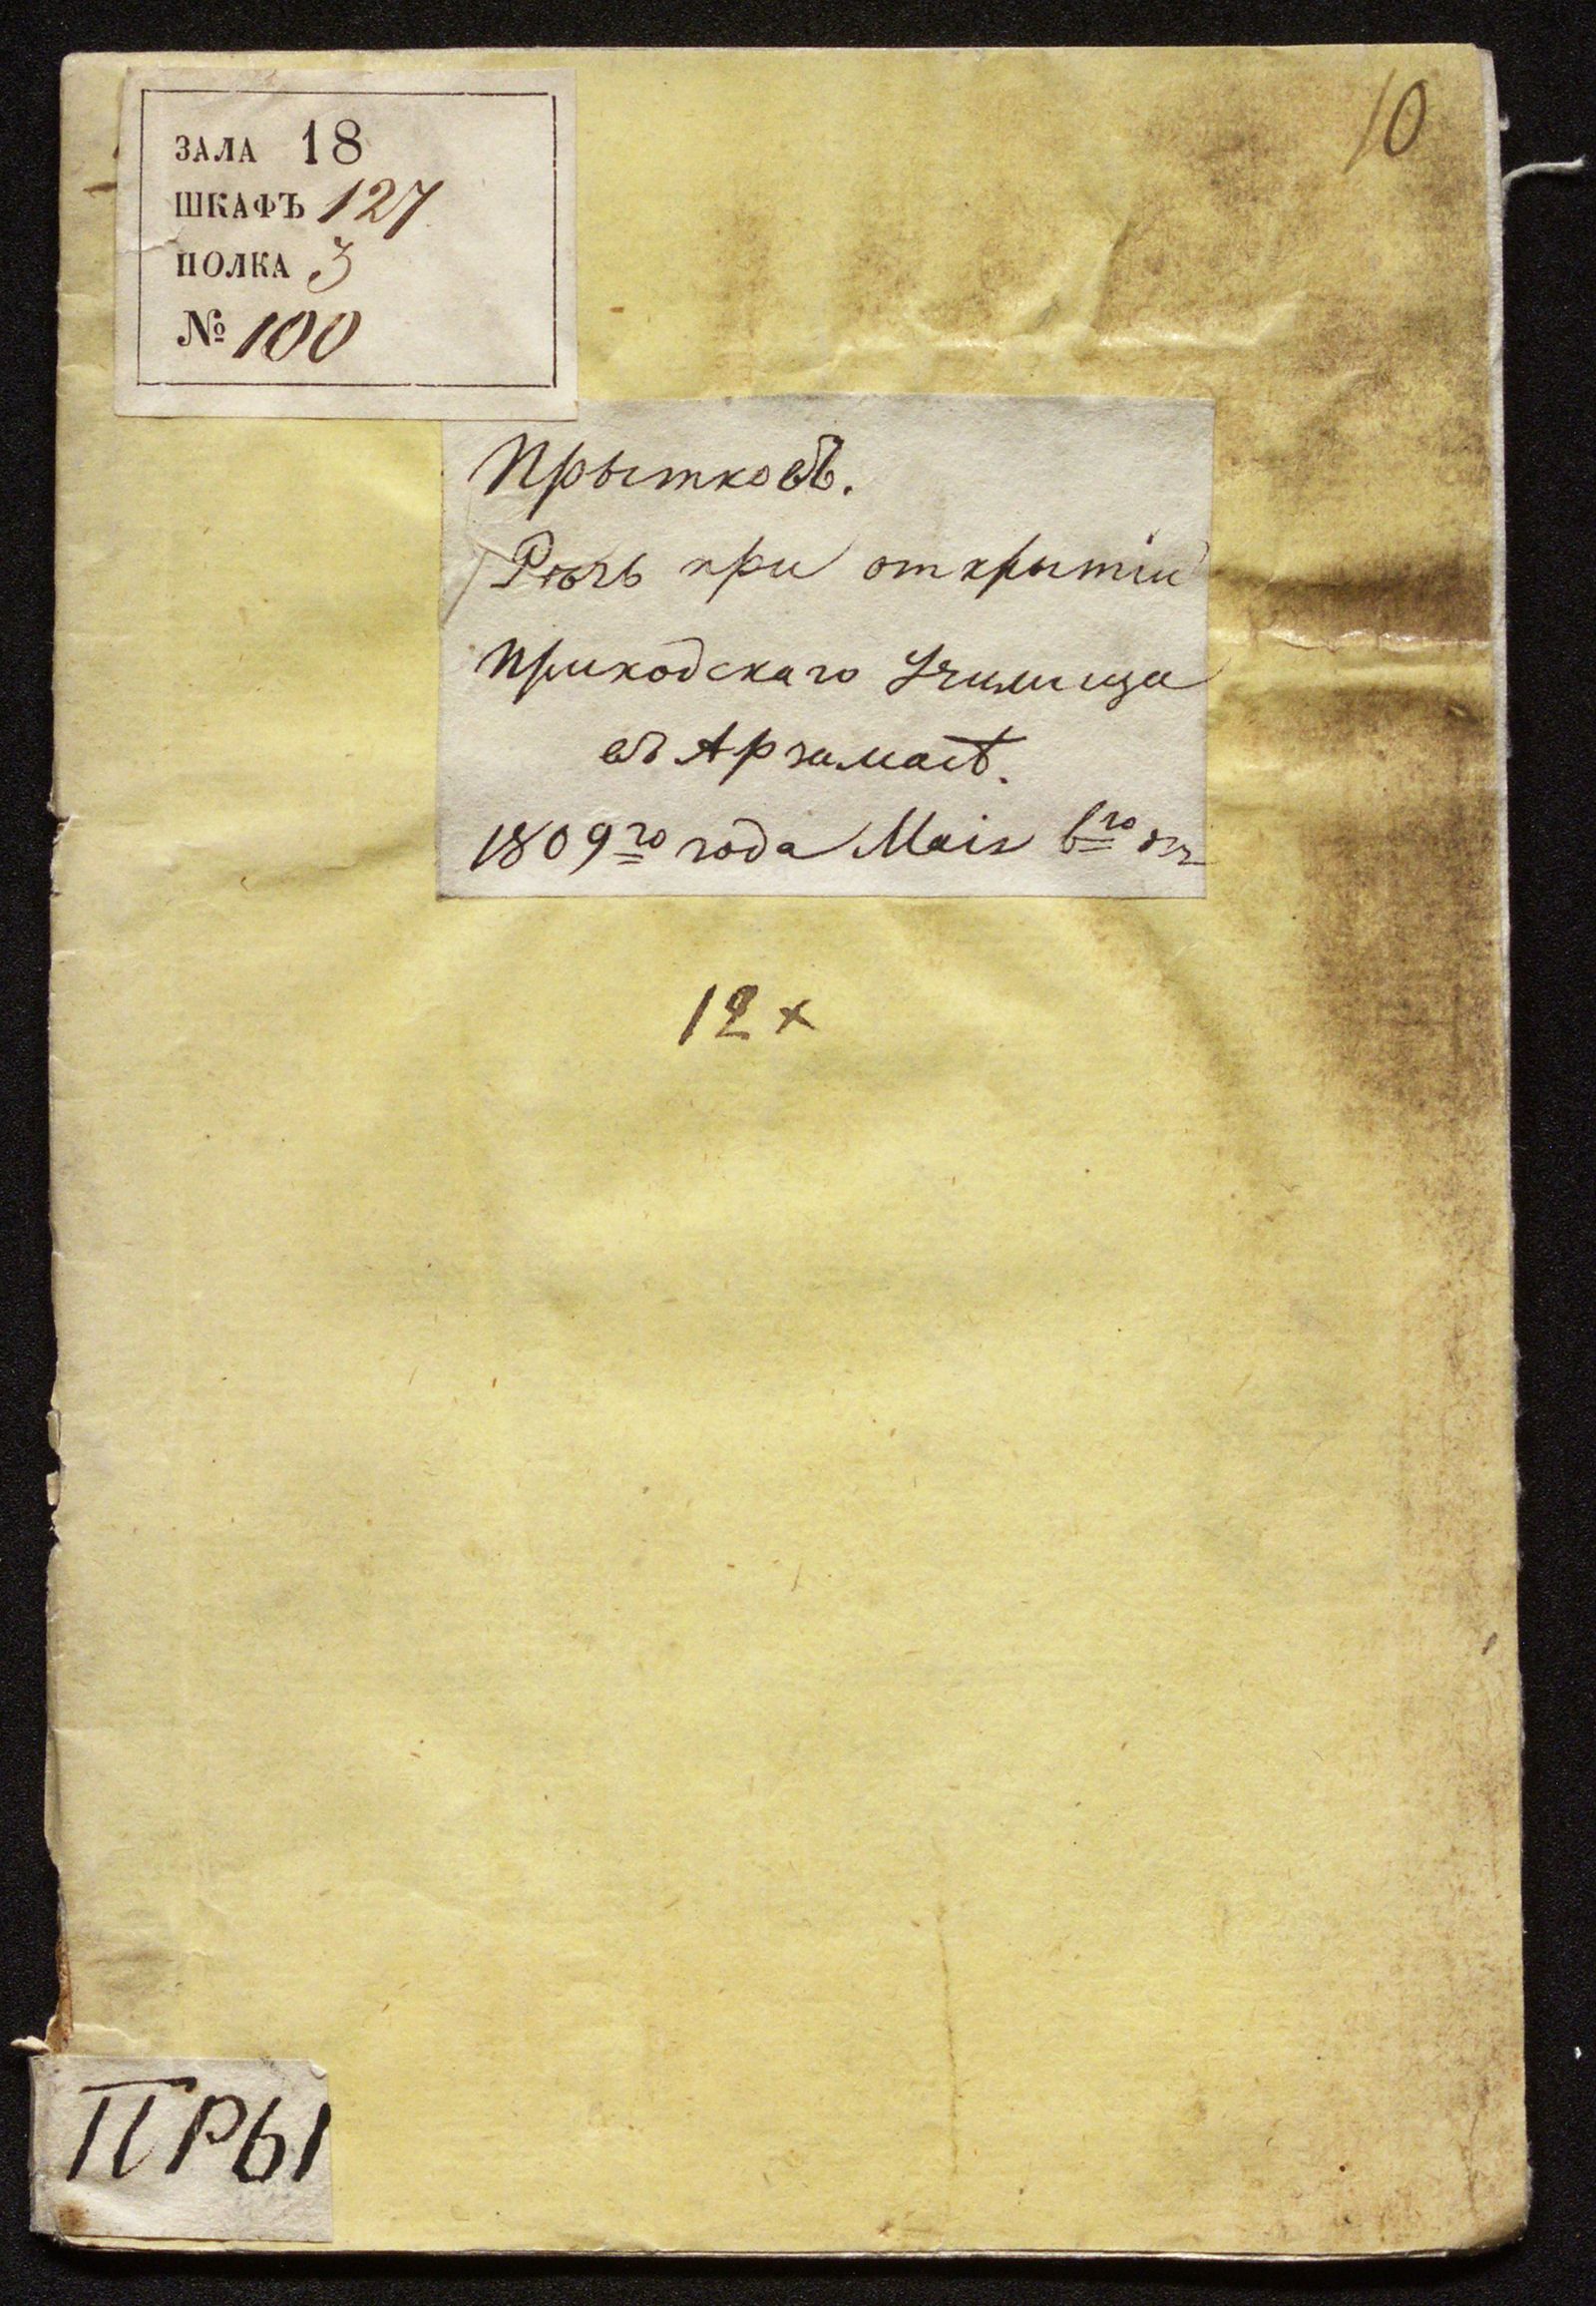 10
ЗАЛА 18
ШКАФЪ 127
ПОЛКА 3
№ 100
Прытковъ.
Рѣчь при открытіи
Приходскаго Училища
въ Арзамасѣ.
1809го года Маія 6го дня
12 ×
ПРЫ